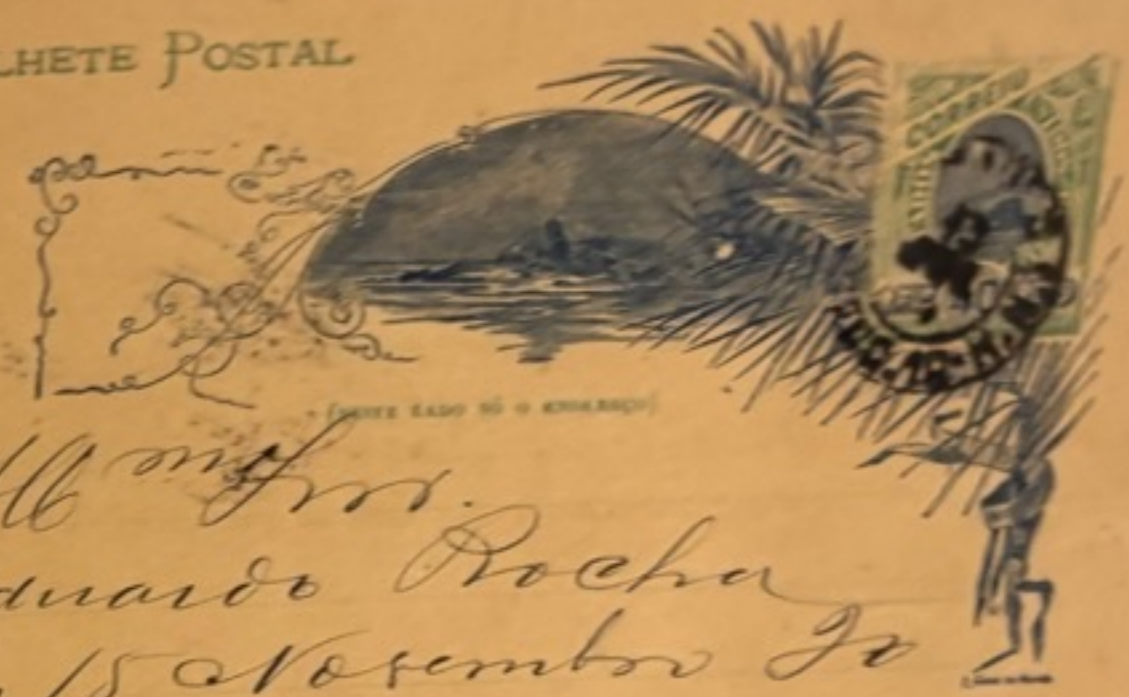 LHETE POSTAL
CORREIO
(NESTE LADO SÓ O ENDEREÇO)
Ill mo Snr.
duardo Rocha
15 Novembro 70